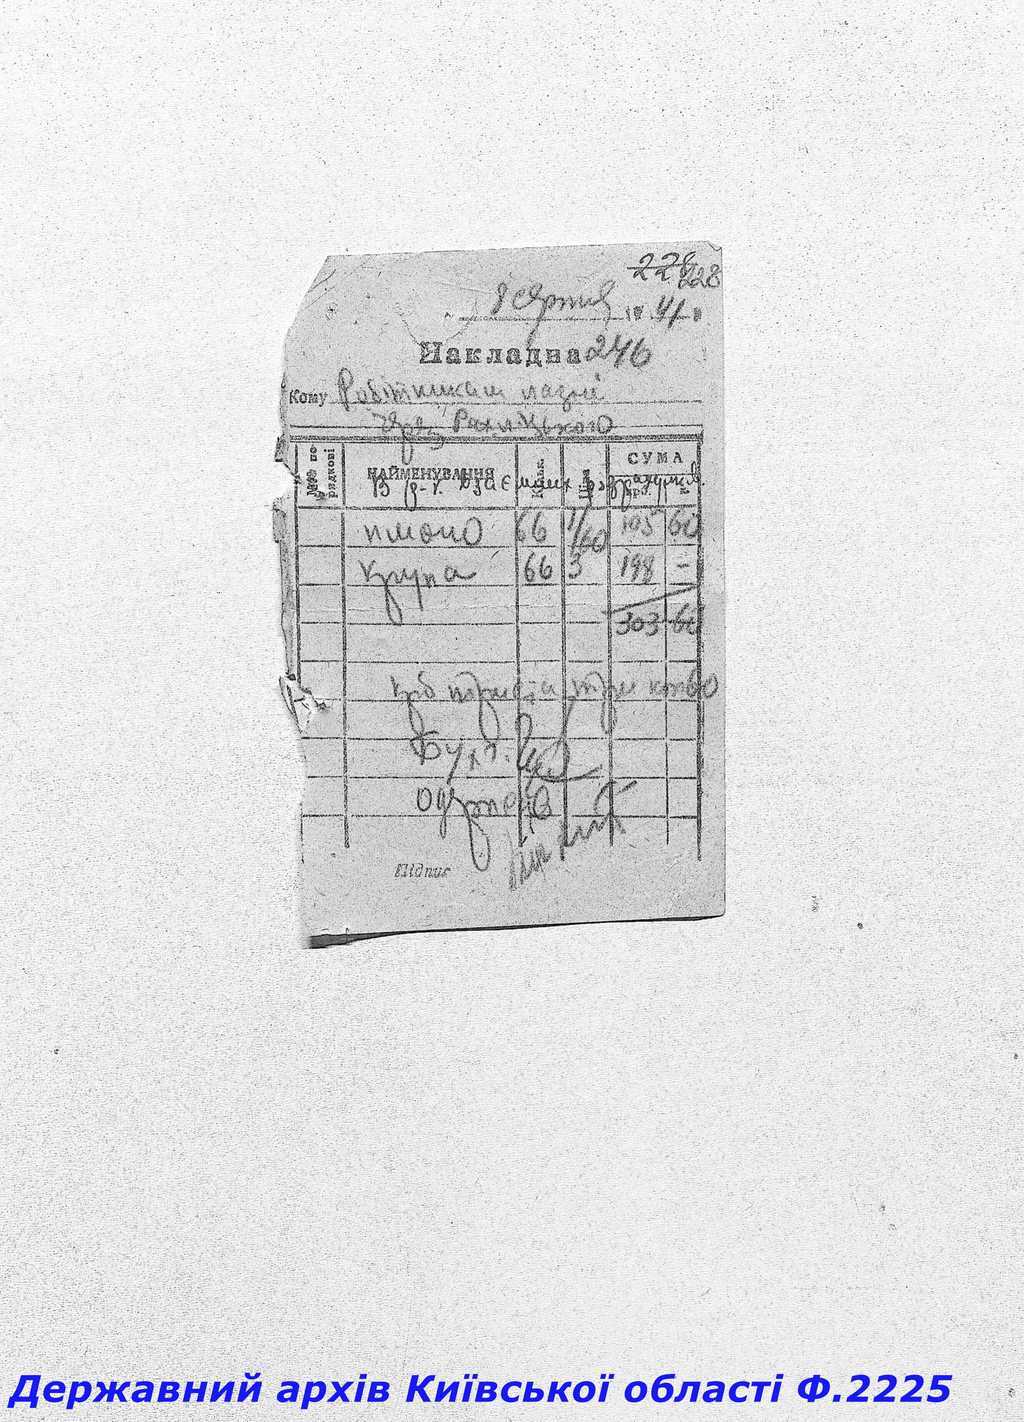 228 228
8 серпня 1941 р
Накладна 246
Кому Робітникам лазні
через
№№ по-рядкові НАЙМЕНУВАННЯ Кільк. Ціна СУМА
В р-х. взаємних розрахунків.
пшоно 66 1/60 105 60
крупа 66 3 198 –
303 60
крб триста три коп 60
Бухг.
Одержав
Підпис
Державний архів Київської області Ф.2225